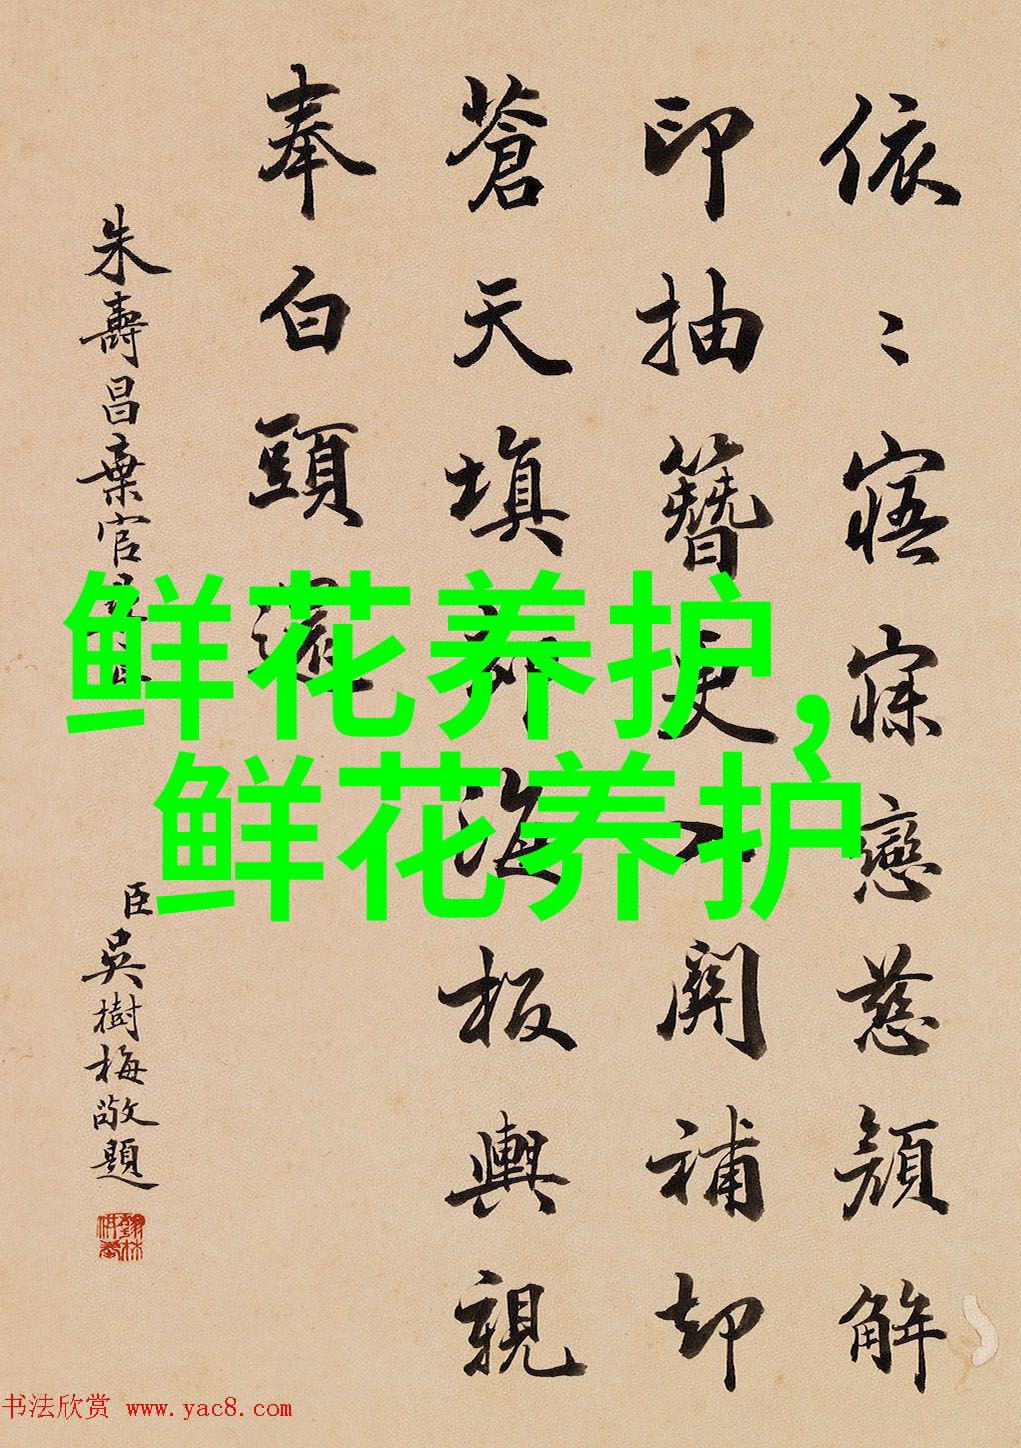 依〻寤寐戀慈顔解
印抽簪更關補却
蒼天填海板輿親
奉白頭還
朱壽昌棄官
臣吳樹梅敬題
鲜花养护,
鲜花养护
书法欣赏 www.yac8.com